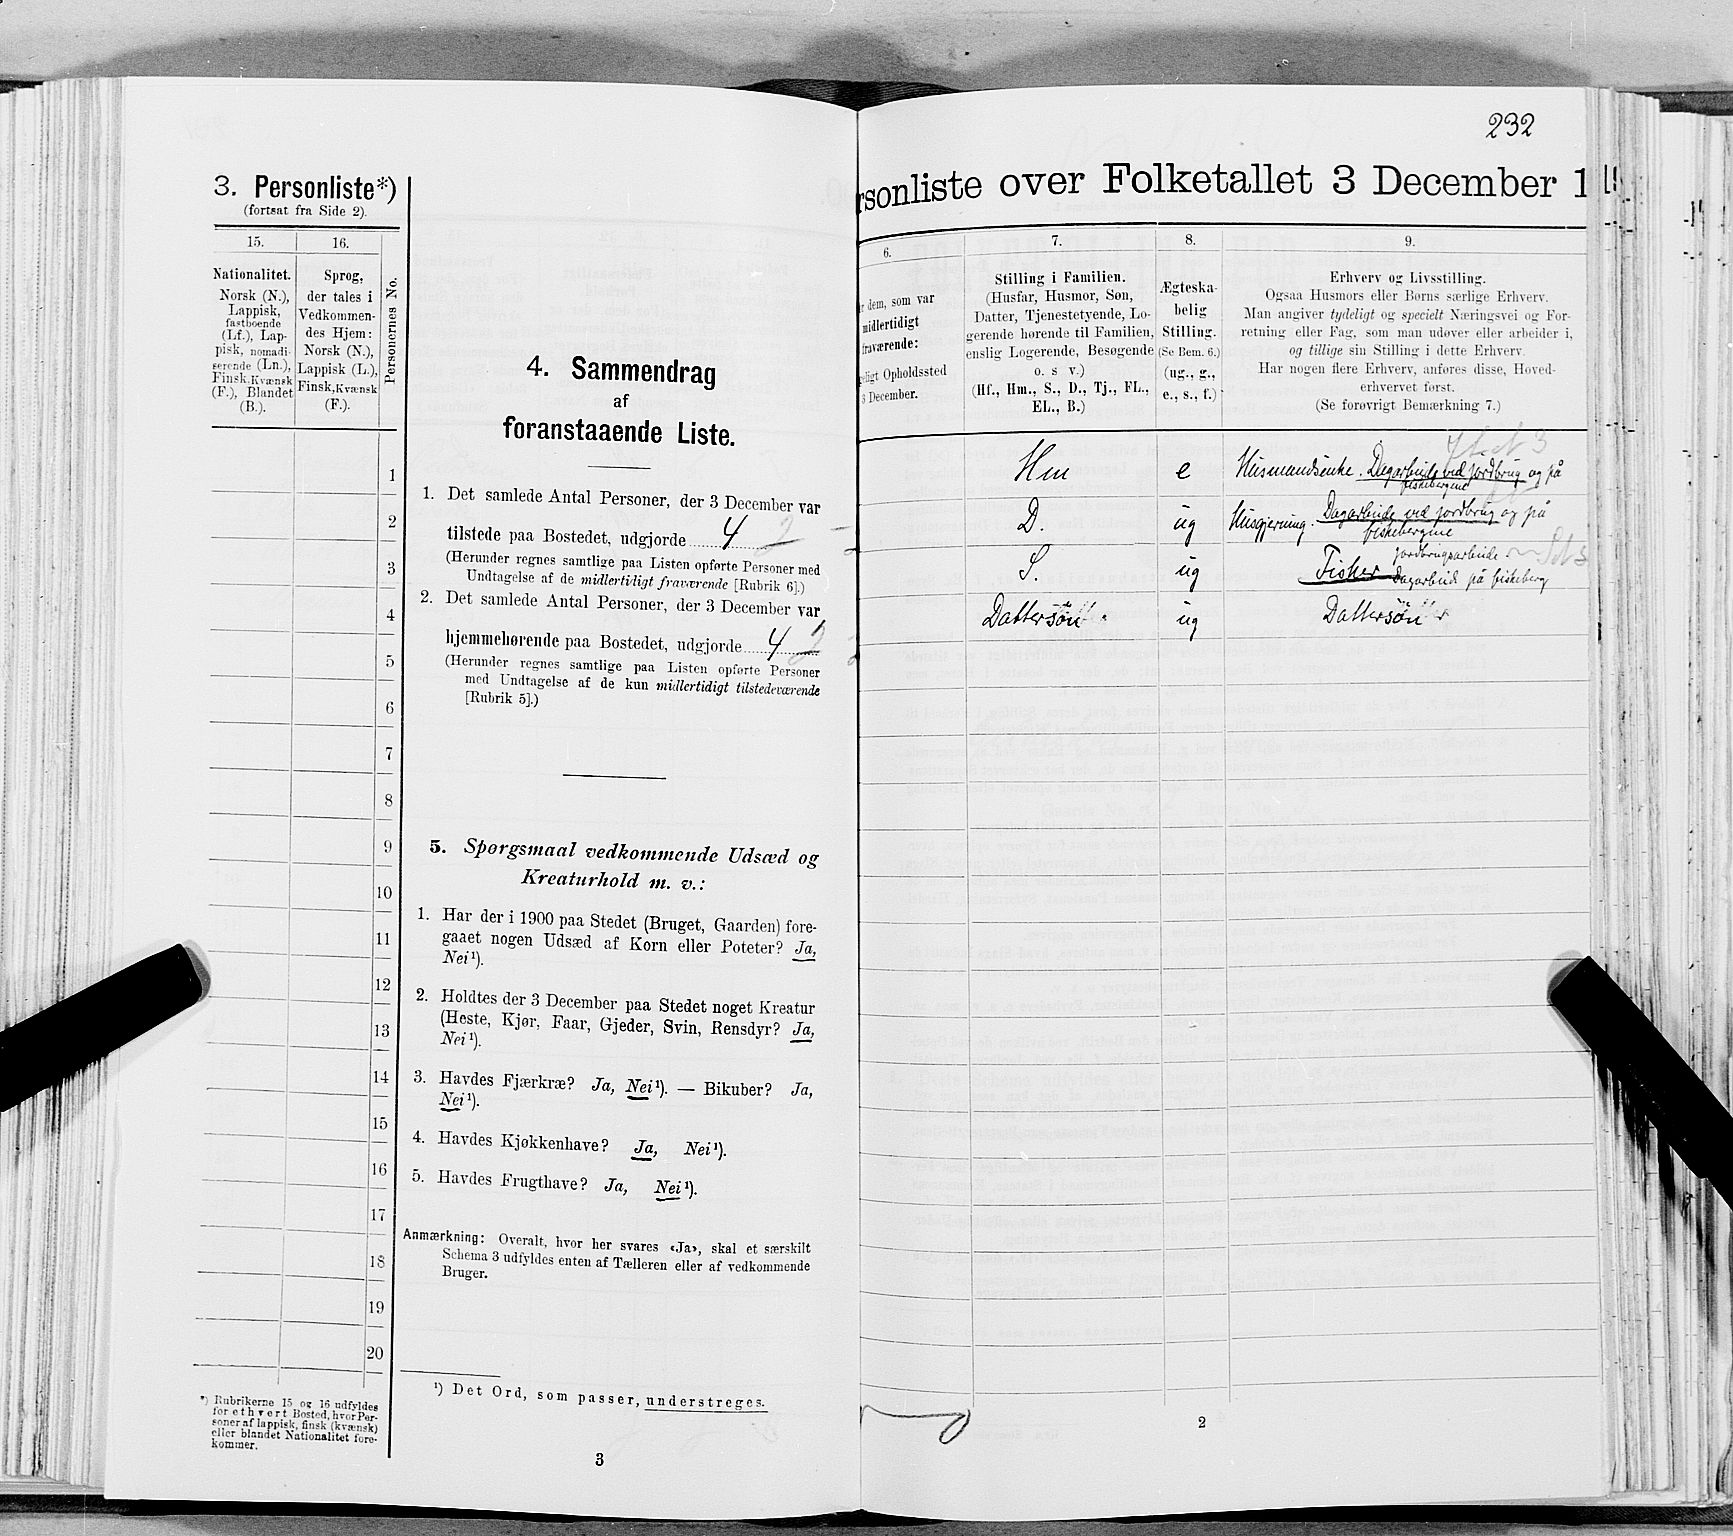 3. Personliste*)
(fortsat fra Side 2).
15.
16.
Personernes No.
Nationalitet.
Norsk (N.),
Lappisk,
fastboende
(Lf.), Lap-
pisk, nomadi-
serende (Ln.),
Finsk, Kvænsk
(F.), Blandet
(B.).
Sprog,
der tales i
Vedkommen-
des Hjem:
Norsk (N.),
Lappisk (L.),
Finsk, Kvænsk
(F.).
1
2
3
4
5
6
7
8
9
10
11
12
13
14
15
16
17
18
19
20
*) Rubrikerne 15 og 16 udfyldes
for ethvert Bosted, hvor Per-
soner af lappisk, finsk (kvænsk)
eller blandet Nationalitet fore-
kommer.
4. Sammendrag
af
foranstaaende Liste.
1. Det samlede Antal Personer, der 3 December var
tilstede paa Bostedet, udgjorde 4 2
(Herunder regnes samtlige paa Listen opførte Personer med
Undtagelse af de midlertidigt fraværende [Rubrik 6].)
2. Det samlede Antal Personer, der 3 December var
hjemmehørende paa Bostedet, udgjorde 4 2
(Herunder regnes samtlige paa Listen opførte Personer
med Undtagelse af de kun midlertidigt tilstedeværende
[Rubrik 5].)
5. Spørgsmaal vedkommende Udsæd og
Kreaturhold m. v.:
1. Har der i 1900 paa Stedet (Bruget, Gaarden) fore-
gaaet nogen Udsæd af Korn eller Poteter? Ja,
Nei¹).
2. Holdtes der 3 December paa Stedet noget Kreatur
(Heste, Kjør, Faar, Gjeder, Svin, Rensdyr? Ja,
Nei¹).
3. Havdes Fjærkræ? Ja, Nei¹). — Bikuber? Ja,
Nei¹).
4. Havdes Kjøkkenhave? Ja, Nei¹).
5. Havdes Frugthave? Ja, Nei¹).
Anmærkning: Overalt, hvor her svares «Ja», skal et særskilt
Schema 3 udfyldes enten af Tælleren eller af vedkommende
Bruger.
¹) Det Ord, som passer, understreges.
3
232
rsonliste over Folketallet 3 December 1
6.
r dem, som var
midlertidigt
fraværende:
eligt Opholdssted
3 December.
7.
Stilling i Familien.
(Husfar, Husmor, Søn,
Datter, Tjenestetyende, Lo-
gerende hørende til Familien,
enslig Logerende, Besøgende
o. s v.)
(Hf., Hm., S., D., Tj., FL.,
EL., B.)
8.
Ægteska-
belig
Stilling.
(Se Bem. 6.)
(ug., g.,
e., s., f.)
9.
Erhverv og Livsstilling.
Ogsaa Husmors eller Børns særlige Erhverv.
Man angiver tydeligt og specielt Næringsvei og For-
retning eller Fag, som man udøver eller arbeider i,
og tillige sin Stilling i dette Erhverv.
Har nogen flere Erhverv, anføres disse, Hoved-
erhvervet først.
(Se forøvrigt Bemærkning 7.)
Hm e Husmandsenke. Dagarbeide ved jordbrug og på
fiskebergene
D. ug Husgjerning. Dagarbeide ved jordbrug og på
fiskebergene
S. ug Fisker jordbrugsarbeide
Dagarbeid på fiskeberg
Dattersøn ug Dattersøn
2